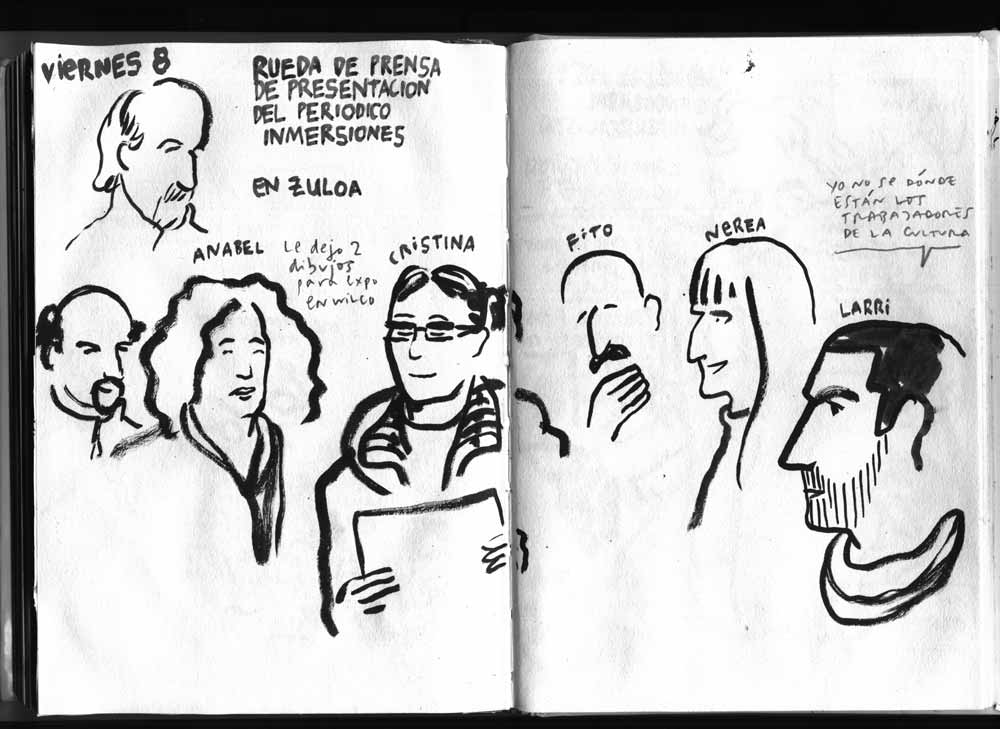 ViERNES 8
RUEDA DE PRENSA
DE PRESENTACION
DEL PERIODICO
INMERSIONES
EN ZULOA
ANABEL
Le dejo 2
dibujos
para expo
en wilco
CRISTINA
FITO
NEREA
YO NO SE DÓNDE
ESTÁN LOS
TRABAJADORES
DE LA CULTURA
LARRi